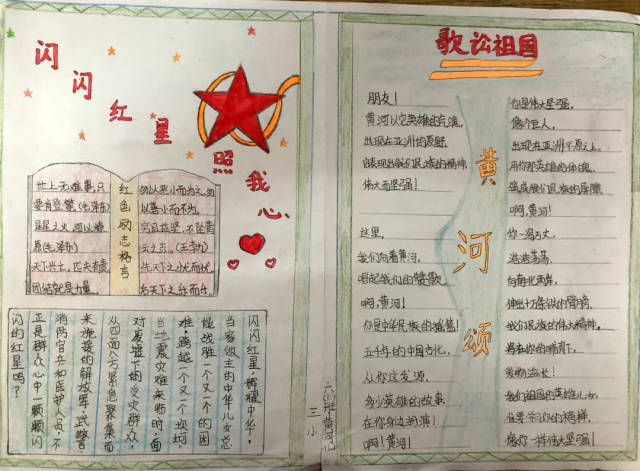 闪闪红星照我心
世上无难事,只
要肯登攀(毛泽东)
星星之火,可以燎
原(毛泽东)
天下兴亡,匹夫有责
团结就是力量
红色励志格言
勿以恶小而为之,勿
以善小而不为。
穷且益坚,不坠青
云之志。(王勃)
先天下之忧而忧,
后天下之乐而乐。
闪闪红星,辉耀中华,
当家做主的中华儿女总
能战胜一个又一个的困
难,跨越一个又一个坎坷。
当地震灾难来临时,面
对废墟下的受灾群众,
从四面八方紧急聚集而
来施援的解放军、武警
消防官兵和医护人员,不
正是群众心中一颗颗闪
闪的红星吗?
三小
歌讼祖国
黄河颂
朋友!
黄河以它英雄的气魄,
出现在亚洲的原野,
它表现出我们民族的精神,
伟大而坚强!
这里,
我们向着黄河,
唱起我们的赞歌。
啊,黄河!
你是中华民族的摇篮!
五千年的中国古化,
从你这发源,
多少英雄的故事
在你身边扮演!
啊!黄河!
你是伟大坚强,
像个巨人,
出现在亚洲平原之上,
用你那英雄的体魄
筑成我们民族的屏障
啊,黄河!
你一泻万丈,
浩浩荡荡,
向南北两岸,
伸出千万条铁的臂膀。
我们民族的伟大精神,
将要在你的哺育下,
发扬滋长!
我们祖国的英雄儿女,
将要学习你的榜样,
像你一样伟大坚强!